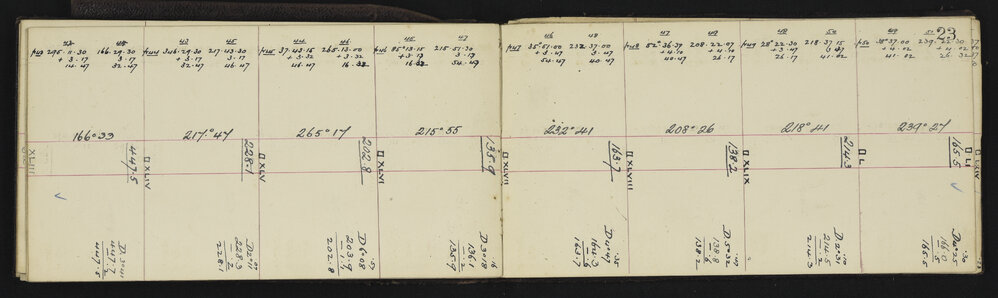 23
43 45
p43 295.11.30 166.29.30
+ 3.17 3.17
14.47 32.47
43 45
p44 346.29.30 217.43.30
+ 3.17 3.17
32.47 46.47
44 46
p45 37.43.15 265.13.00
+ 3.32 + 3.32
46.47 16.32
45 47
p46 85°13.15 215.51.30
+ 3.17
54.47
46 48
p47 35°51.00 232.37.00
+ 3.47 3.47
54.47 40.47
47 49
p48 52°36.37 208.22.07
+ 4.10 + 4.10
40.47 26.17
49 50
p49 28°22.30 218.37.15
+ 3.47 3.47
26.17 41.02
49
p50 38°37.00 239.22.30
+ 4.02 + 4.02
41.02 26.32
166°33
217.°47
265°17
215°55
232°41
208°26
218°41
239°27
XLIII
447.5
XLIV
228.1
XLV
202.8
XLVI
135.9
XLVII
163.7
XLVIII
138.2
XLIX
214.3
L
165.5
LI
447.5
228.3
228.1
D 6°08
203.9
202.8
D 3°18
136.1
.2
135.9
D 4°47
164.3
163.7
D 5°32
138.8
.6
138.2
214.5
.2
214.3
166.0
.5
165.5